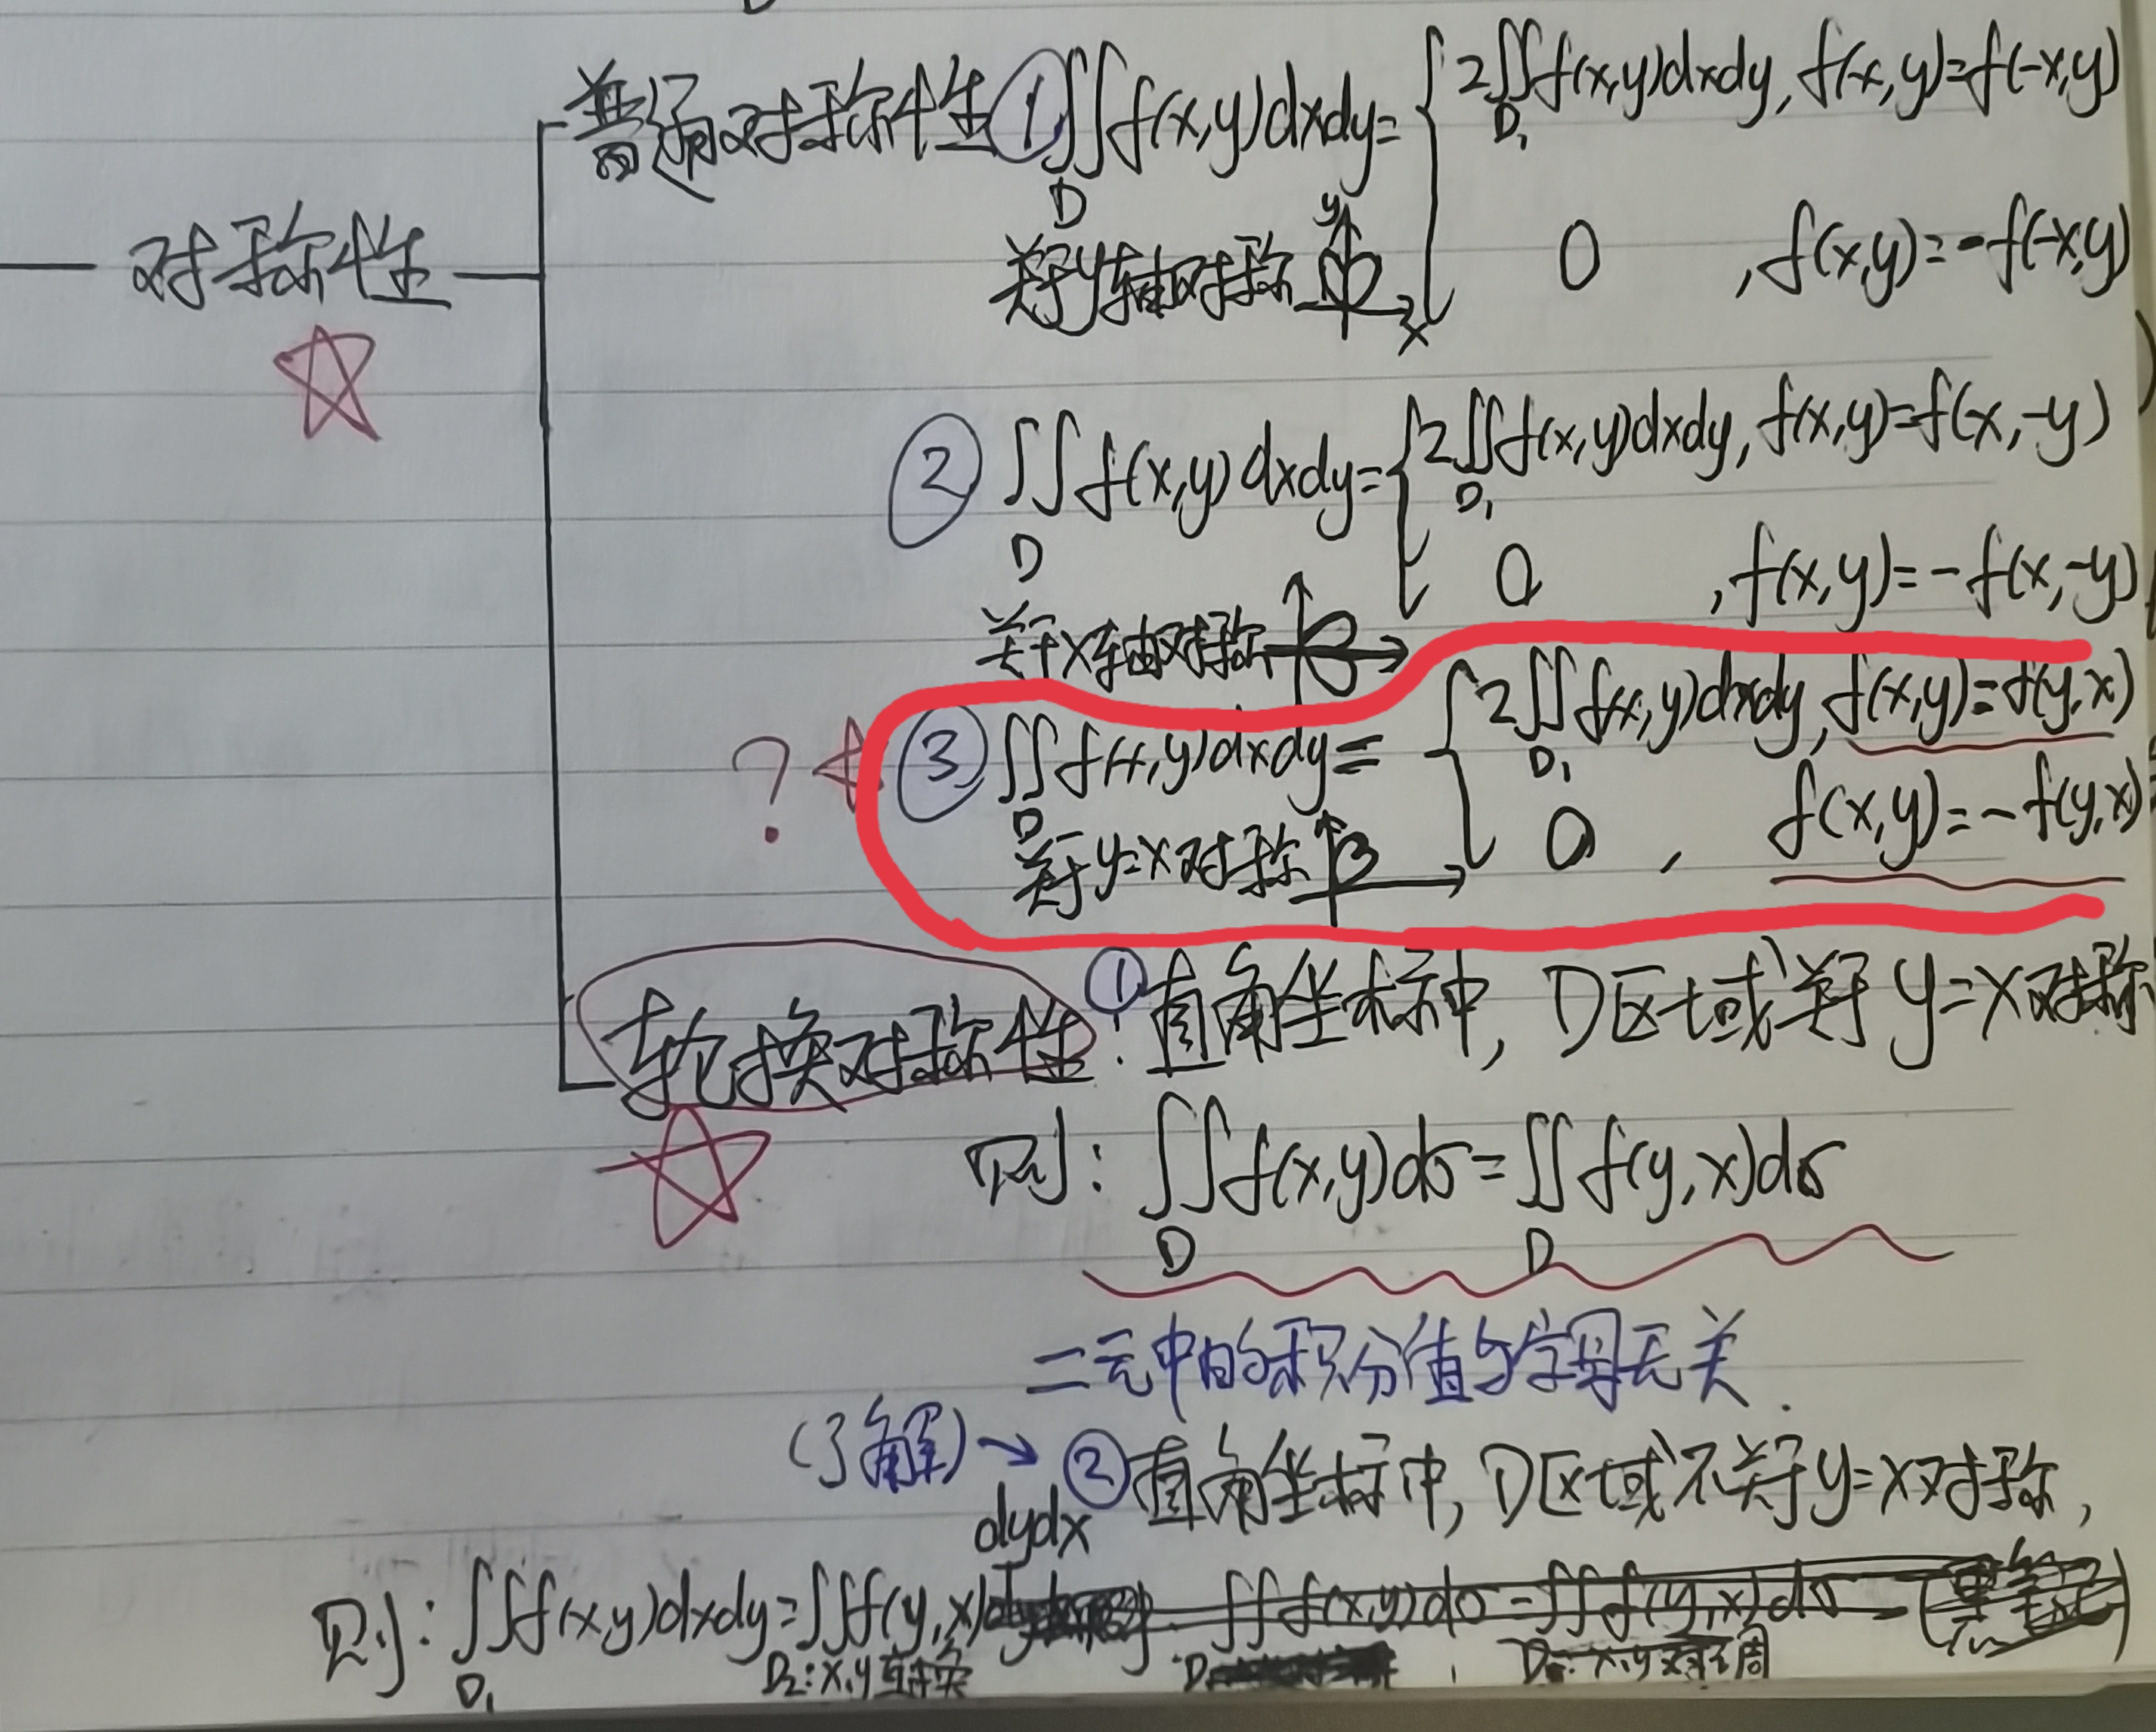 普通对称性 ① ∬_D f(x,y)dxdy= { 2∬_{D₁} f(x,y)dxdy, f(x,y)=f(-x,y)
0 , f(x,y)=-f(-x,y)
关于y轴对称 y x
对称性
② ∬_D f(x,y)dxdy= { 2∬_{D₁} f(x,y)dxdy, f(x,y)=f(x,-y)
0 , f(x,y)=-f(x,-y)
关于x轴对称
? ③ ∬_D f(x,y)dxdy= { 2∬_{D₁} f(x,y)dxdy, f(x,y)=f(y,x)
0 , f(x,y)=-f(y,x)
关于y=x对称
轮换对称性: ① 直角坐标中, D区域关于y=x对称
则: ∬_D f(x,y)dσ=∬_D f(y,x)dσ
二元中的积分值与字母无关.
(了解)→ ② 直角坐标中, D区域不关于y=x对称,
dydx
则: ∬_{D₁} f(x,y)dxdy=∬_{D₂:x,y互换} f(y,x) ∬ f(x,y)dσ=∬ f(y,x)dσ